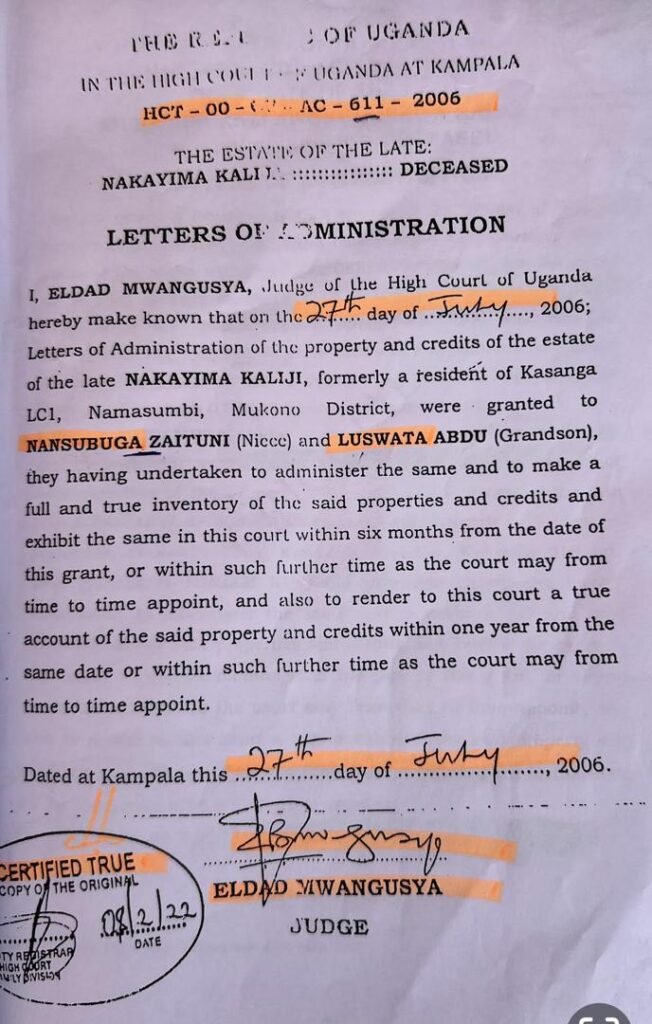 THE OF UGANDA
IN THE HIGH COURT OF UGANDA AT KAMPALA
HCT - 00 - AC - 611 - 2006
THE ESTATE OF THE LATE:
NAKAYIMA KALIJI :::::::::::::::: DECEASED
LETTERS OF ADMINISTRATION
I, ELDAD MWANGUSYA, Judge of the High Court of Uganda
hereby make known that on the 27th day of July, 2006;
Letters of Administration of the property and credits of the estate
of the late NAKAYIMA KALIJI, formerly a resident of Kasanga
LC1, Namasumbi, Mukono District, were granted to
NANSUBUGA ZAITUNI (Niece) and LUSWATA ABDU (Grandson),
they having undertaken to administer the same and to make a
full and true inventory of the said properties and credits and
exhibit the same in this court within six months from the date of
this grant, or within such further time as the court may from
time to time appoint, and also to render to this court a true
account of the said property and credits within one year from the
same date or within such further time as the court may from
time to time appoint.
Dated at Kampala this 27th day of July, 2006.
ELDAD MWANGUSYA
JUDGE
CERTIFIED TRUE
COPY OF THE ORIGINAL
08/2/22
DATE
TY REGISTRAR
HIGH COURT
DIVISION